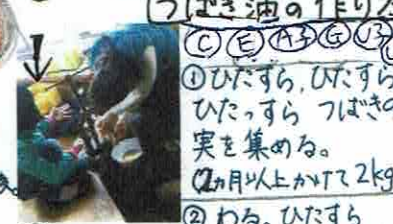 つばき油の作り方
C E A子 G J子
①ひたすら、ひたすら
ひたっすら つばきの
実を集める。
(2ヵ月以上かけて2kg
②わる。ひたすら